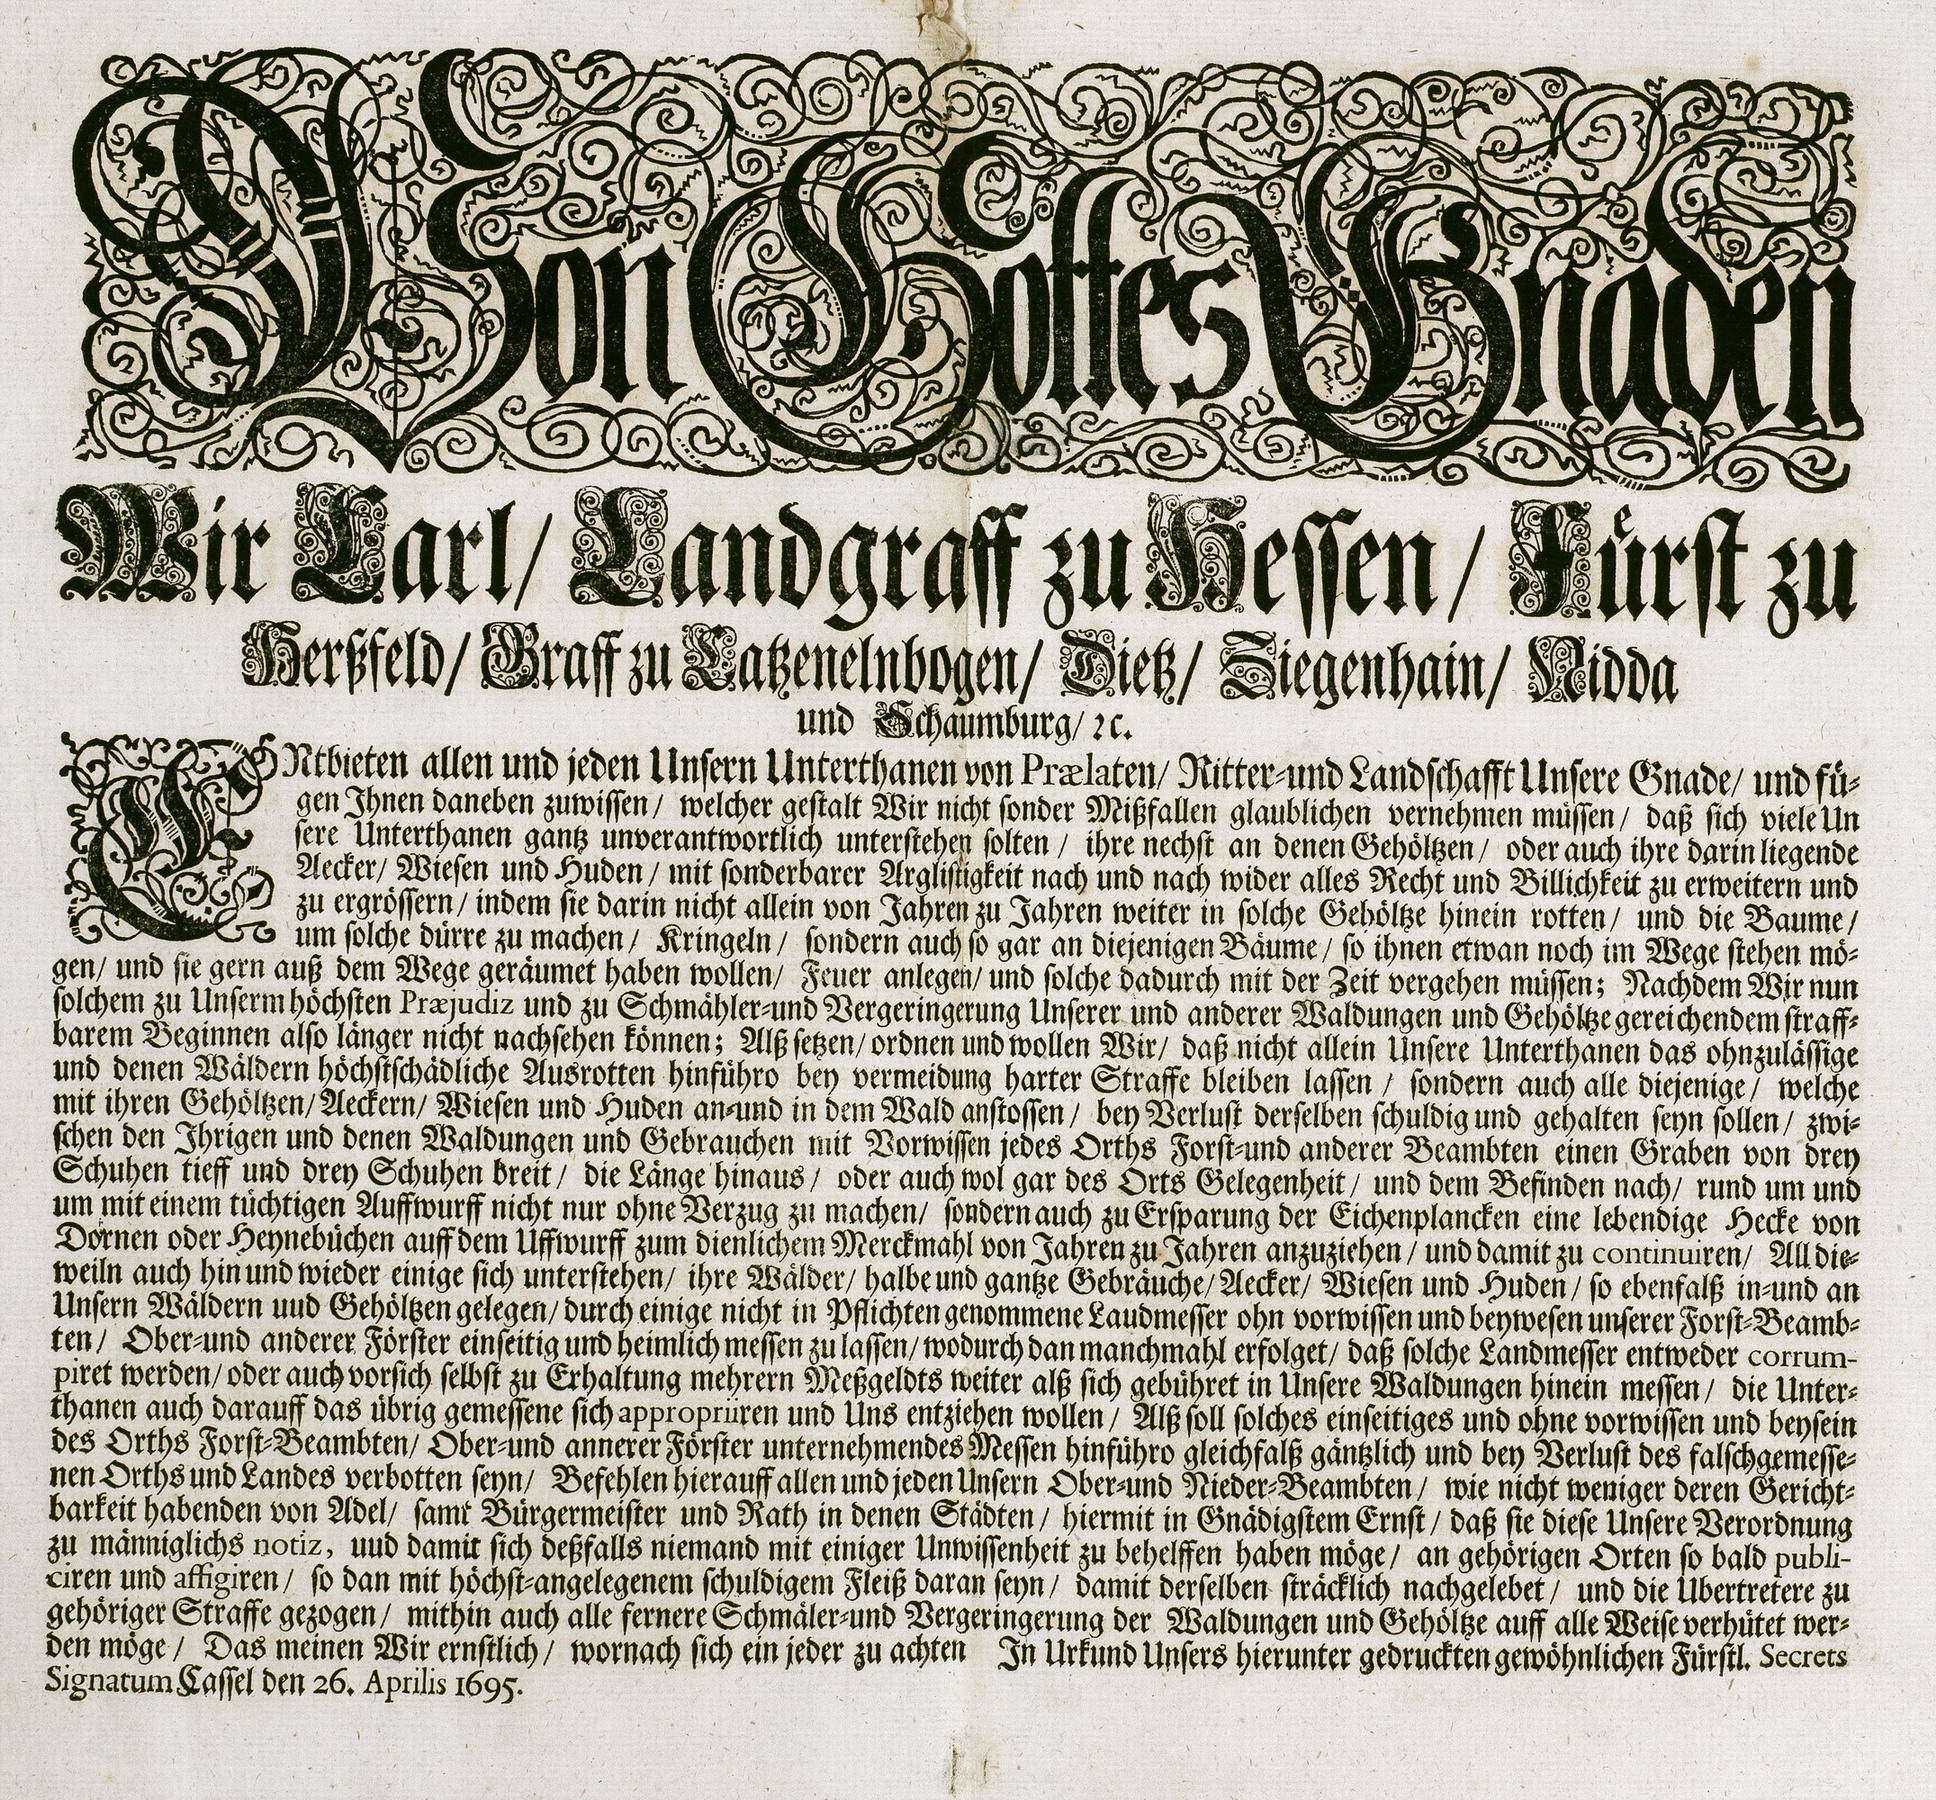 Von Gottes Gnaden
Wir Carl/ Landgraff zu Hessen/ Fürst zu
Herßfeld/ Graff zu Catzenelnbogen/ Dietz/ Ziegenhain/ Nidda
und Schaumburg/ ꝛc.
ENtbieten allen und jeden Unsern Unterthanen von Prælaten/ Ritter-und Landschafft Unsere Gnade/ und fü-
gen Ihnen daneben zuwissen/ welcher gestalt Wir nicht sonder Mißfallen glaublichen vernehmen müssen/ daß sich viele Un
sere Unterthanen gantz unverantwortlich unterstehen solten/ ihre nechst an denen Gehöltzen/ oder auch ihre darin liegende
Aecker/ Wiesen und Huden/ mit sonderbarer Arglistigkeit nach und nach wider alles Recht und Billichkeit zu erweitern und
zu ergrössern/ indem sie darin nicht allein von Jahren zu Jahren weiter in solche Gehöltze hinein rotten/ und die Baume/
um solche dürre zu machen/ Kringeln/ sondern auch so gar an diejenigen Bäume/ so ihnen etwan noch im Wege stehen mö-
gen/ und sie gern auß dem Wege geräumet haben wollen/ Feuer anlegen/ und solche dadurch mit der Zeit vergehen müssen; Nachdem Wir nun
solchem zu Unserm höchsten Præjudiz und zu Schmähler-und Vergeringerung Unserer und anderer Waldungen und Gehöltze gereichendem straff-
barem Beginnen also länger nicht nachsehen können; Alß setzen/ ordnen und wollen Wir/ daß nicht allein Unsere Unterthanen das ohnzulässige
und denen Wäldern höchstschädliche Ausrotten hinführo bey vermeidung harter Straffe bleiben lassen/ sondern auch alle diejenige/ welche
mit ihren Gehöltzen/ Aeckern/ Wiesen und Huden an-und in dem Wald anstossen/ bey Verlust derselben schuldig und gehalten seyn sollen/ zwi-
schen den Ihrigen und denen Waldungen und Gebrauchen mit Vorwissen jedes Orths Forst-und anderer Beambten einen Graben von drey
Schuhen tieff und drey Schuhen breit/ die Länge hinaus/ oder auch wol gar des Orts Gelegenheit/ und dem Befinden nach/ rund um und
um mit einem tüchtigen Auffwurff nicht nur ohne Verzug zu machen/ sondern auch zu Ersparung der Eichenplancken eine lebendige Hecke von
Dornen oder Heynebüchen auff dem Uffwurff zum dienlichem Merckmahl von Jahren zu Jahren anzuziehen/ und damit zu continuiren/ All die-
weiln auch hin und wieder einige sich unterstehen/ ihre Wälder/ halbe und gantze Gebräuche/ Aecker/ Wiesen und Huden/ so ebenfalß in-und an
Unsern Wäldern uud Gehöltzen gelegen/ durch einige nicht in Pflichten genommene Laudmesser ohn vorwissen und beywesen unserer Forst-Beamb-
ten/ Ober-und anderer Förster einseitig und heimlich messen zu lassen/ wodurch dan manchmahl erfolget/ daß solche Landmesser entweder corrum-
piret werden/ oder auch vorsich selbst zu Erhaltung mehrern Meßgeldts weiter alß sich gebühret in Unsere Waldungen hinein messen/ die Unter-
thanen auch darauff das übrig gemessene sich appropriiren und Uns entziehen wollen/ Alß soll solches einseitiges und ohne vorwissen und beysein
des Orths Forst-Beambten/ Ober-und annerer Förster unternehmendes Messen hinführo gleichfalß gäntzlich und bey Verlust des falschgemesse-
nen Orths und Landes verbotten seyn/ Befehlen hierauff allen und jeden Unsern Ober-und Nieder-Beambten/ wie nicht weniger deren Gericht-
barkeit habenden von Adel/ samt Bürgermeister und Rath in denen Städten/ hiermit in Gnädigstem Ernst/ daß sie diese Unsere Verordnung
zu männiglichs notiz, uud damit sich deßfalls niemand mit einiger Unwissenheit zu behelffen haben möge/ an gehörigen Orten so bald publi-
ciren und affigiren/ so dan mit höchst-angelegenem schuldigem Fleiß daran seyn/ damit derselben sträcklich nachgelebet/ und die Ubertretere zu
gehöriger Straffe gezogen/ mithin auch alle fernere Schmäler-und Vergeringerung der Waldungen und Gehöltze auff alle Weise verhütet wer-
den möge/ Das meinen Wir ernstlich/ wornach sich ein jeder zu achten In Urkund Unsers hierunter gedruckten gewöhnlichen Fürstl. Secrets
Signatum Cassel den 26. Aprilis 1695.